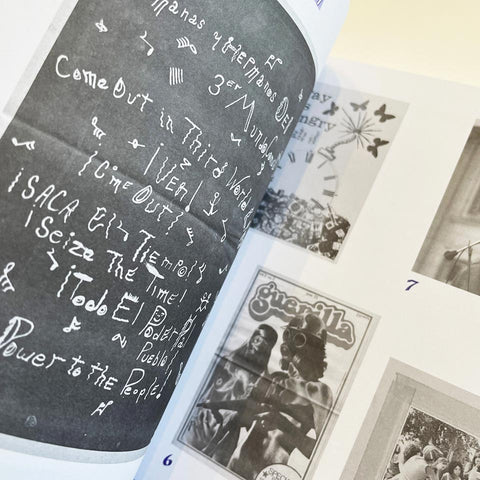 manas y Hermanas DEl
3er Mundo
Come Out in Third World
¡VEN!
¡Come Out!
¡SACA El TIEMPO!
¡Seize The Time!
¡Todo El Poder
Pueblo!
Power to the People!
guerrilla
6
7